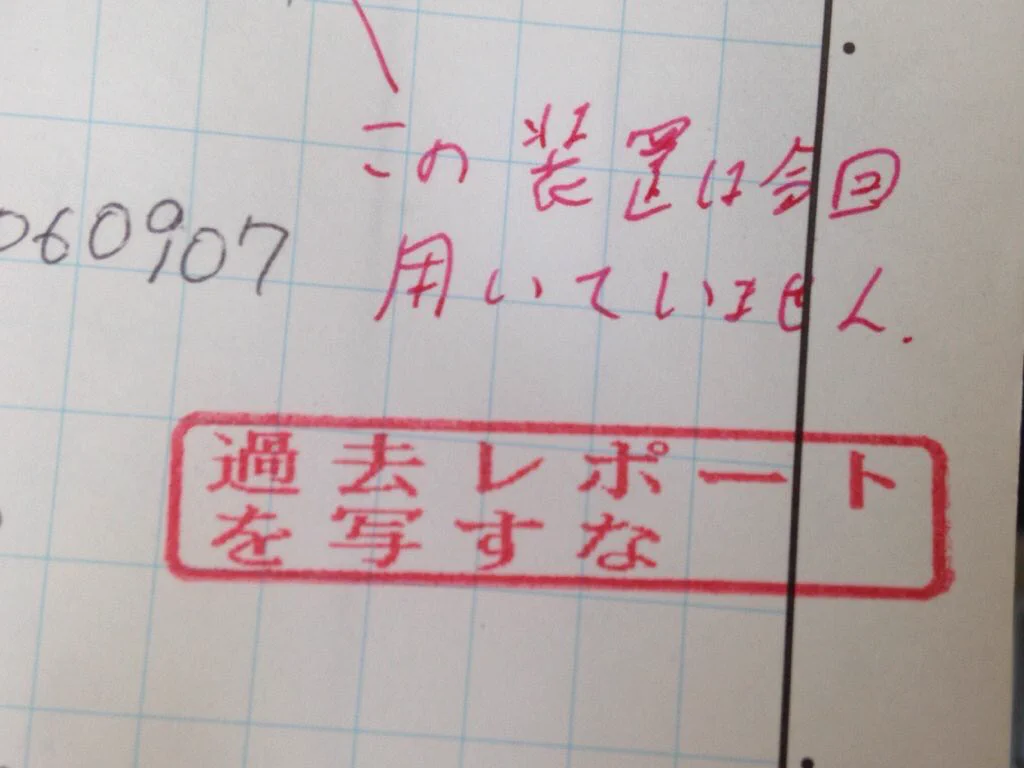 この装置は今回
060907
用いていません.
過去レポート
を写すな